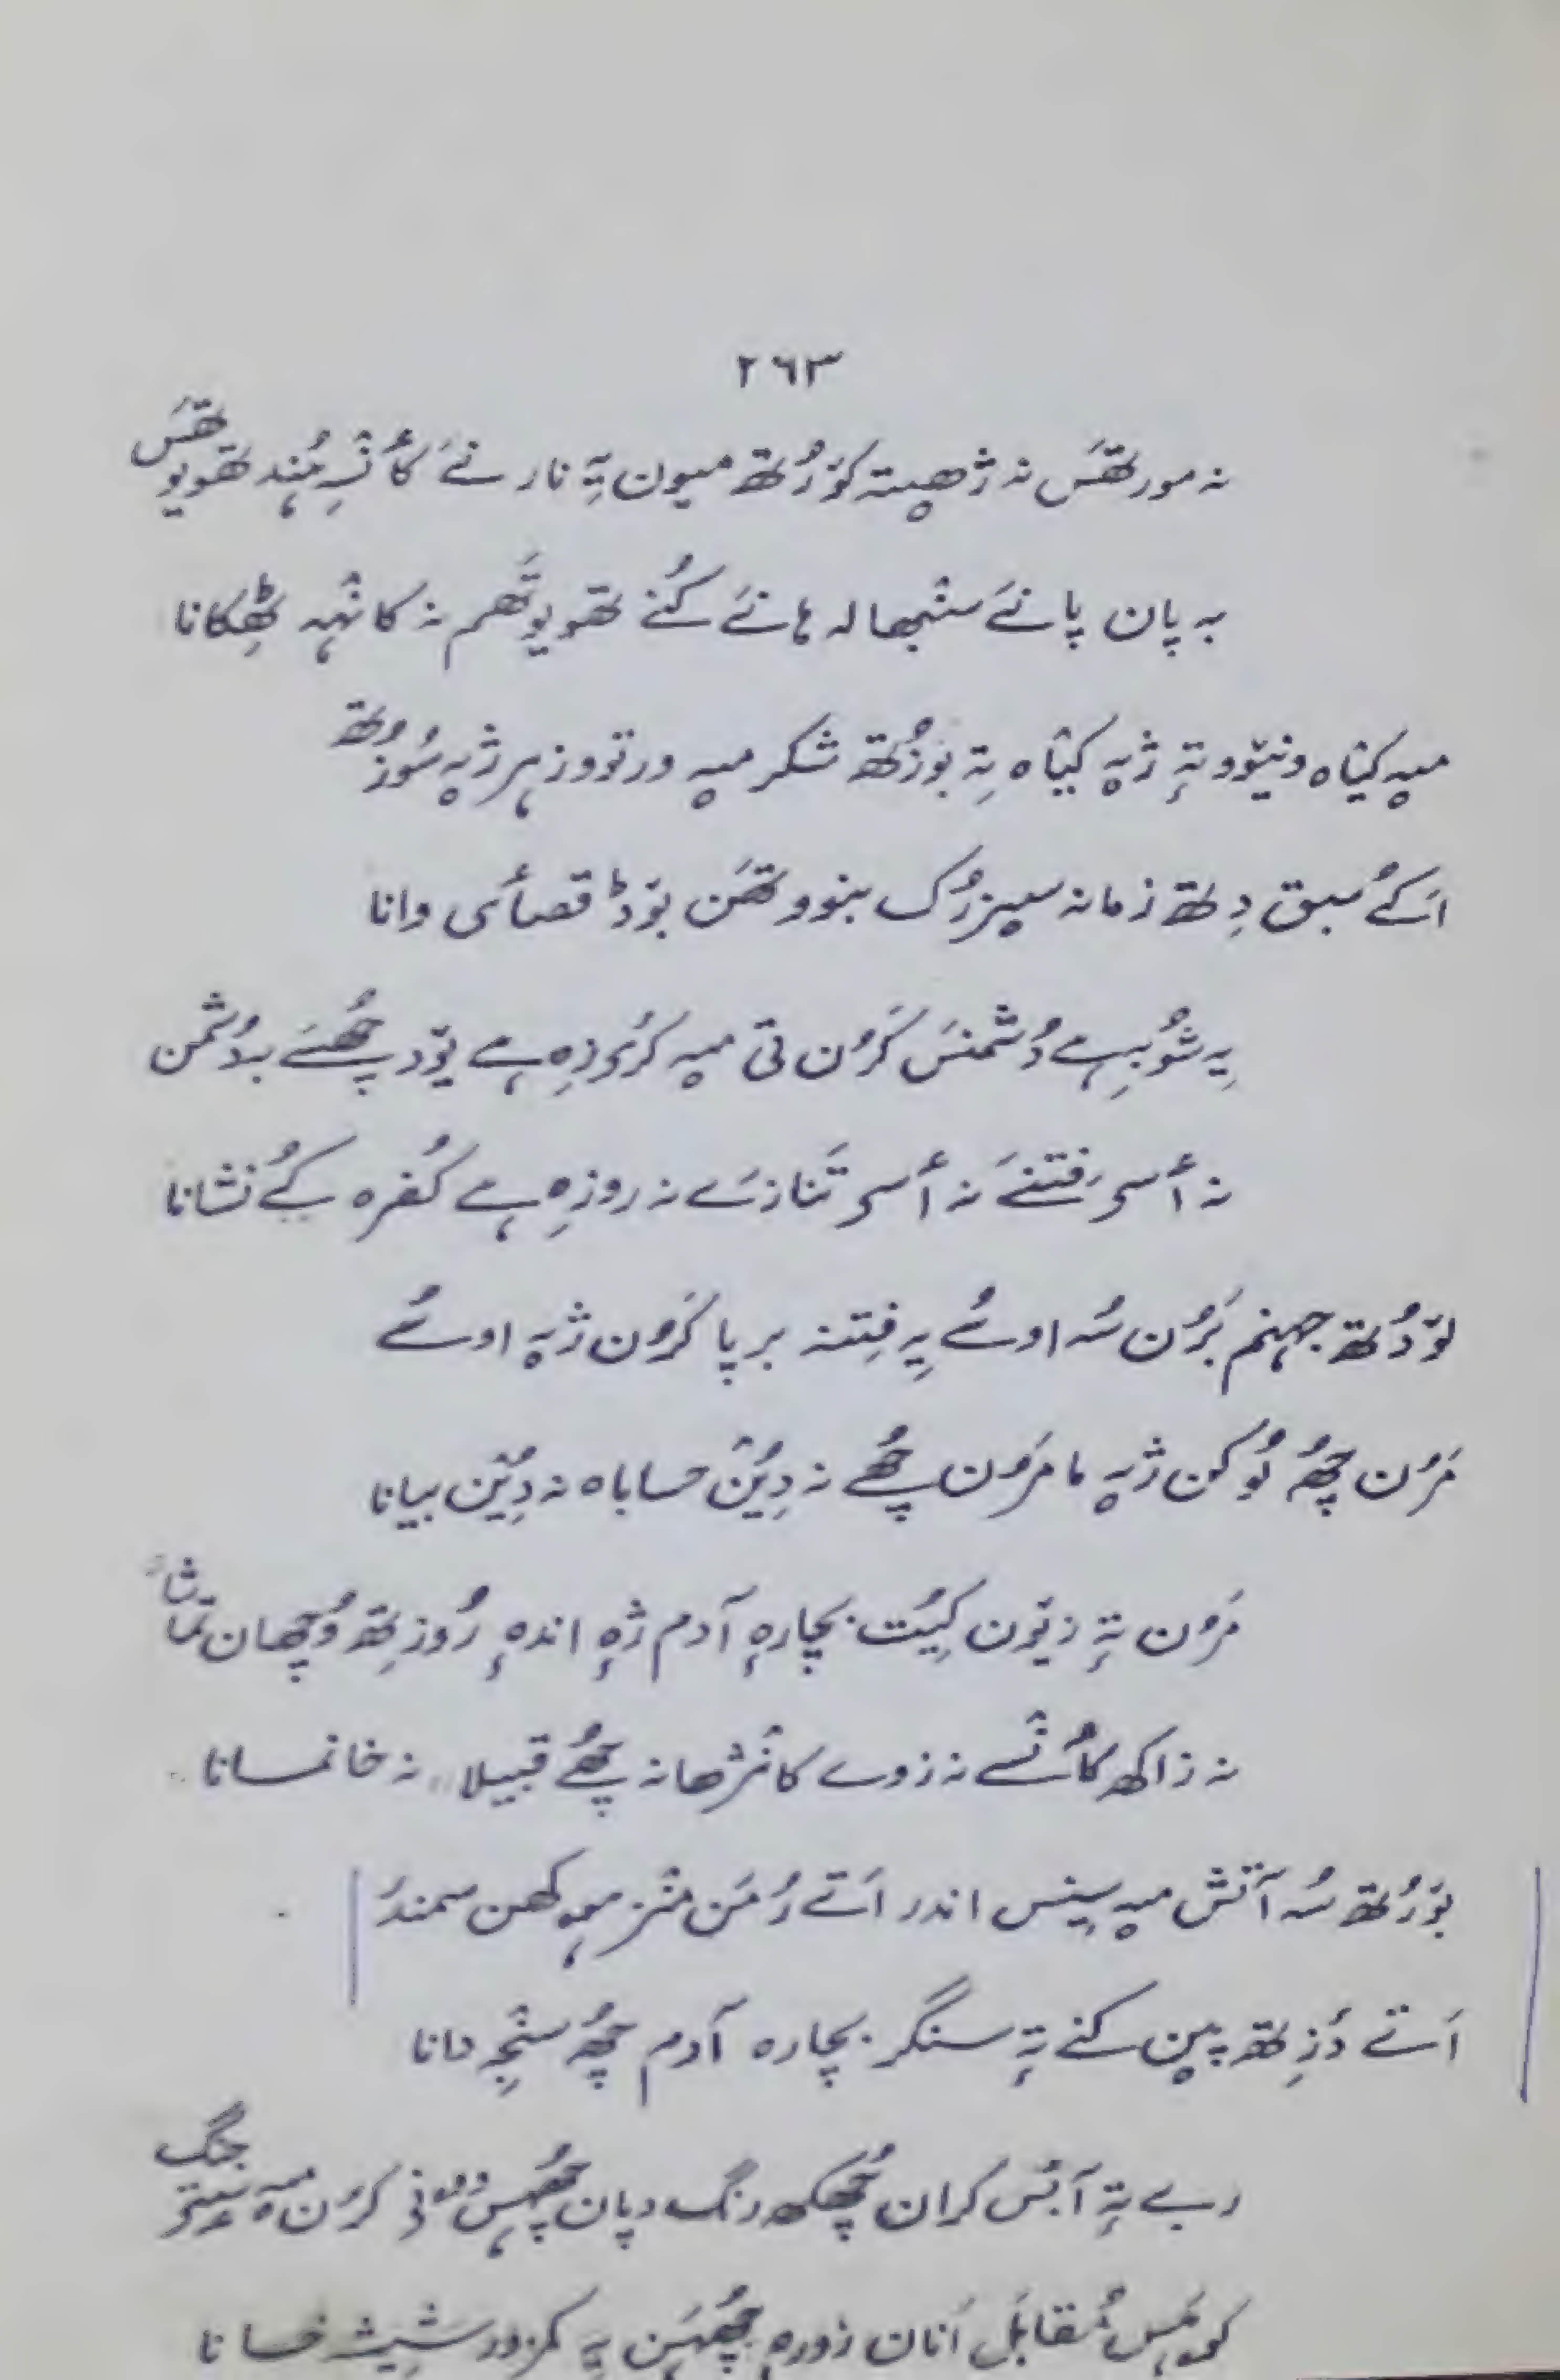 ۲۶۳
نہ مورتھَس نہ ژھیتہ کوٚرُتھ میون تہِ نار نےَ کأنٛسہِ ہُند تھویوتھَس
بہ پان پانےَ سنٛبھالہ ہا نےَ کُنے تھویوتَھم نہ کانٛہہ ٹھِکانا
میہِ کیٛاہ ونیوٚو تہٕ ژیہِ کیٛاہ تِہ بوزُتھ شکر میہِ ورتووز ہر ژیہِ سُوزُتھ
اَکُے سبق دِتھ زمانہ سیزرُک بنووتھَن بوٚڈ قصأی وانا
یہِ شوٗبہِ ہے دُشمنَس کَرُن تی میہِ کرٔی زِہ ہے یوٚد چھُے بد دُشمن
نہ أسۍ فتنےَ نہ أسۍ تَنازےَ نہ روزِہ ہے کُفرہ کُے نشانا
لوٚدُتھ جہنم بَرُن سُہ اوسُے یہِ فِتنہ برپا کَرُن ژیہِ اوسُے
مَرُن چھُ لوٗکن ژیہِ ما مَرُن چھُے نہ دِیُن حساباہ نہ دِیُن بیانا
مَرُن تہٕ زیوٚن کیُت بچارہٕ آدم ژہٕ اندہٕ رُوزِتھ وُچھان تماشا
نہ زاکھ کأنٛسے نہ زوے کانٛژھا نہ چھُے قبیلا نہ خانمانا
بوٚرُتھ سُہ آتش میہِ سیٖنس اندر اَتے رُمَن منٛز ہیہِ کھن سمندرُ
اَتے دَزِتھ پین کنے تہٕ سنگر بچارہ آدم چھُ سنٛجِہ دانا
ربے تہٕ آبٕس کران چھُکھ رنگ دپان چھُہس کرُن میہِ سٟتۍ جنگ
کوہَس مُقابَل اَنان زورہٕ چھُہَن یہِ کمزور شیشہ خانا